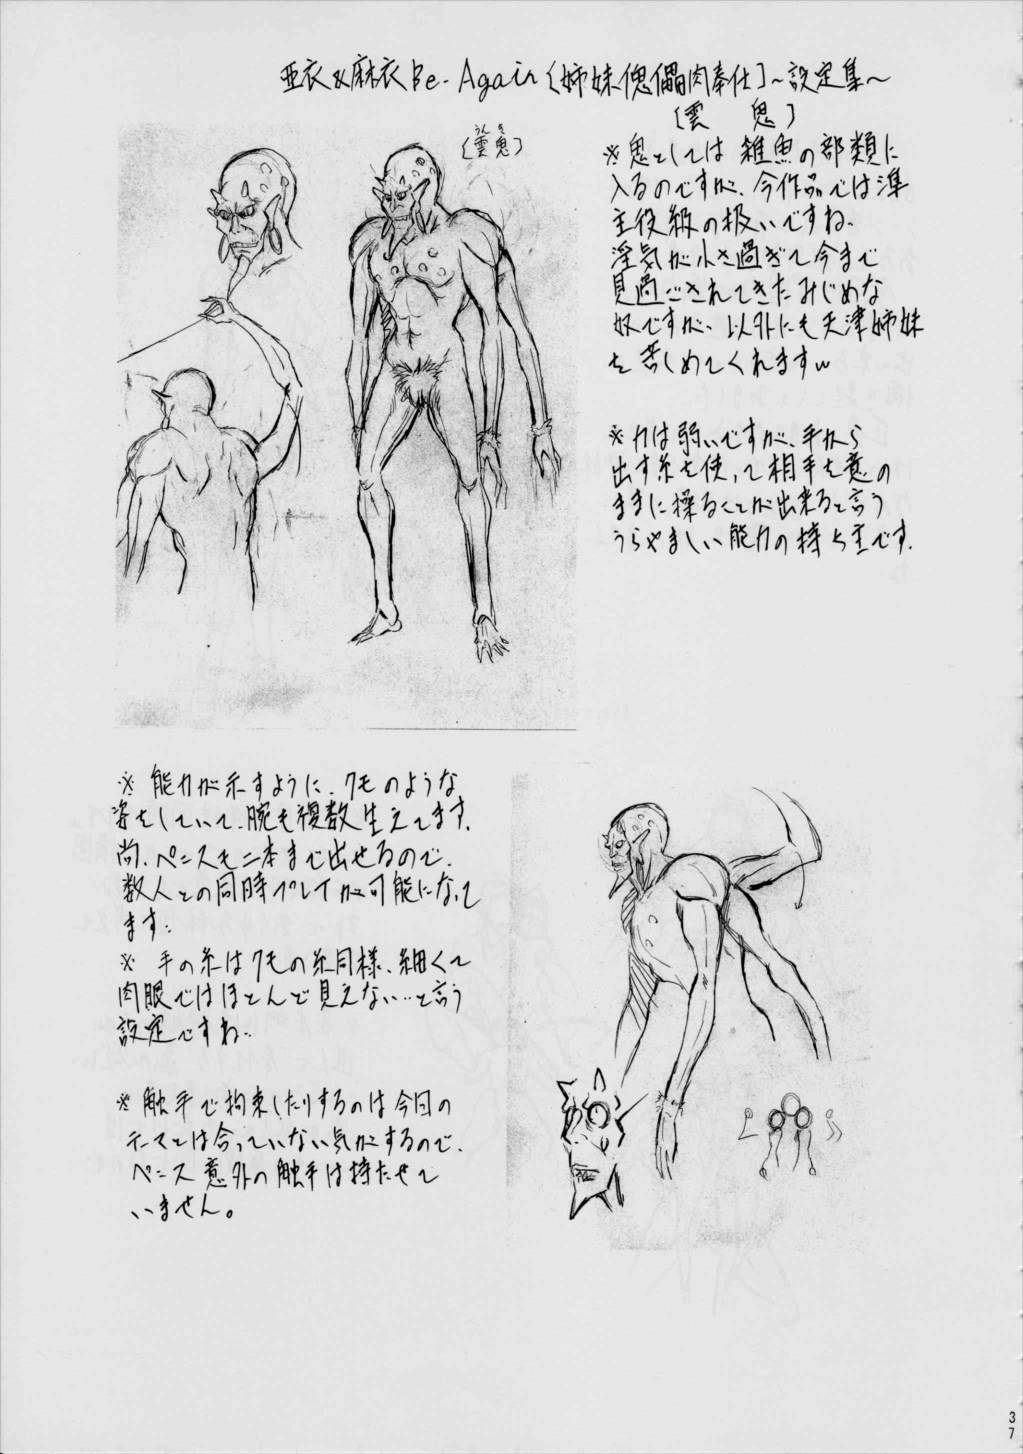 亜衣&麻衣Be-Again〔姉妹傀儡肉奉仕〕~設定集~
〔雲 鬼〕
〔雲鬼〕
うんき
※鬼としては雑魚の部類に
入るのですが、今作品では準
主役級の扱いですね。
淫気が小さ過ぎて今まで
見過ごされてきたみじめな
奴ですが、以外にも天津姉妹
を苦しめてくれますw
※力は弱いですが、手から
出す糸を使って相手を意の
ままに操ることが出来ると言う
うらやましい能力の持ち主です。
※能力が示すように、クモのような
姿をしていて、腕も複数生えてます。
尚、ペニスも二本まで出せるので、
数人との同時プレイが可能になって
ます。
※手の糸はクモの糸同様、細くて
肉眼ではほとんど見えない…と言う
設定ですね。
※触手で拘束したりするのは今回の
テーマとは合っていない気がするので、
ペニス意外の触手は持たせて
いません。
37